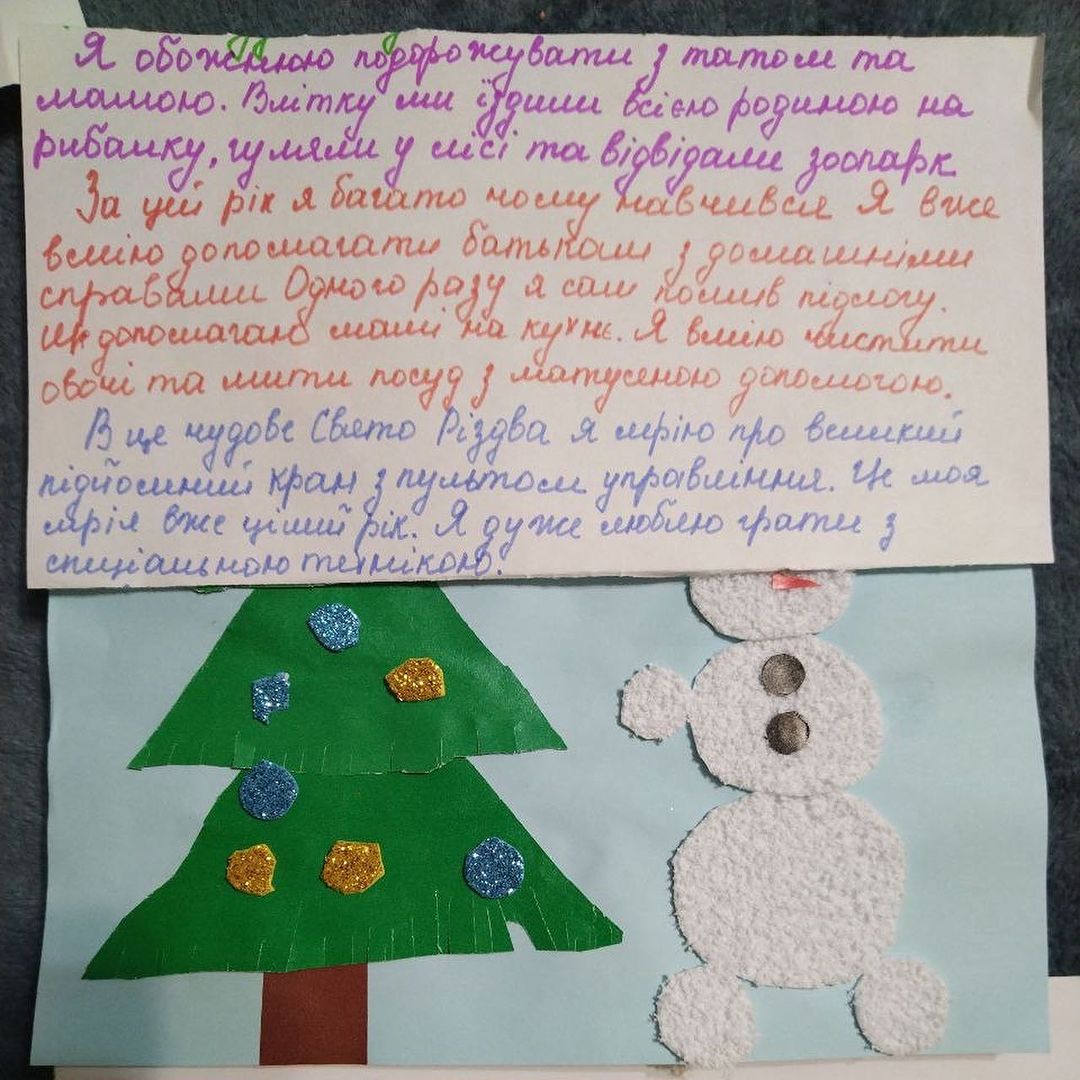 Я обожнюю подорожувати з татом та
мамою. Влітку ми їздили всією родиною на
рибалку, гуляли у лісі та відвідали зоопарк
За цей рік я багато чому навчився Я вже
вмію допомагати батькам з домашніми
справами Одного разу я сам помив підлогу.
допомагав мамі на кухнє. Я вмію чистити
овочі та мити посуд з матусеною допомогою.
В це чудове Свято Різдва я мрію про великий
підйомний кран з пультом управління. Це моя
мрія вже цілий рік. Я дуже люблю грати з
спиціальною технікою.